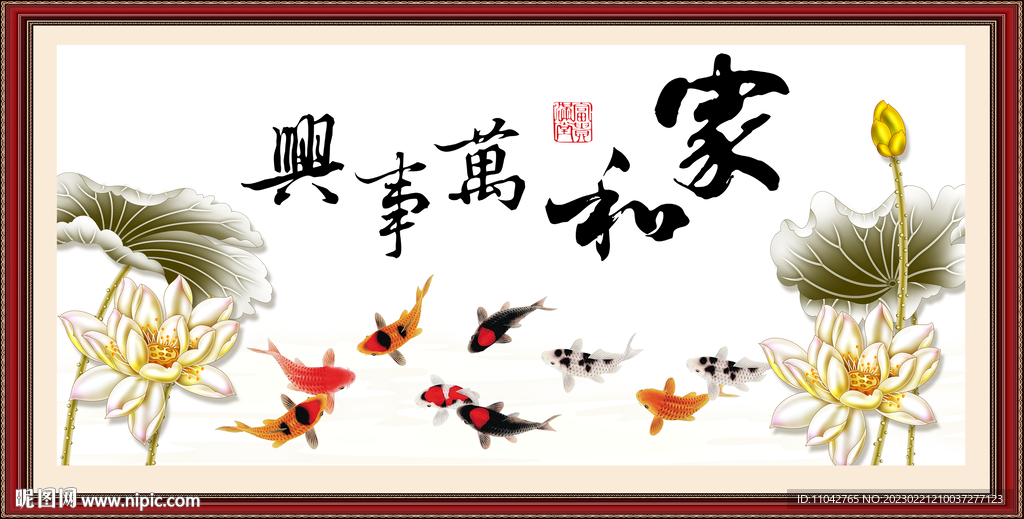 家和萬事興
富貴滿堂
昵图网 www.nipic.com
ID:11042765 NO:20230221210037277123